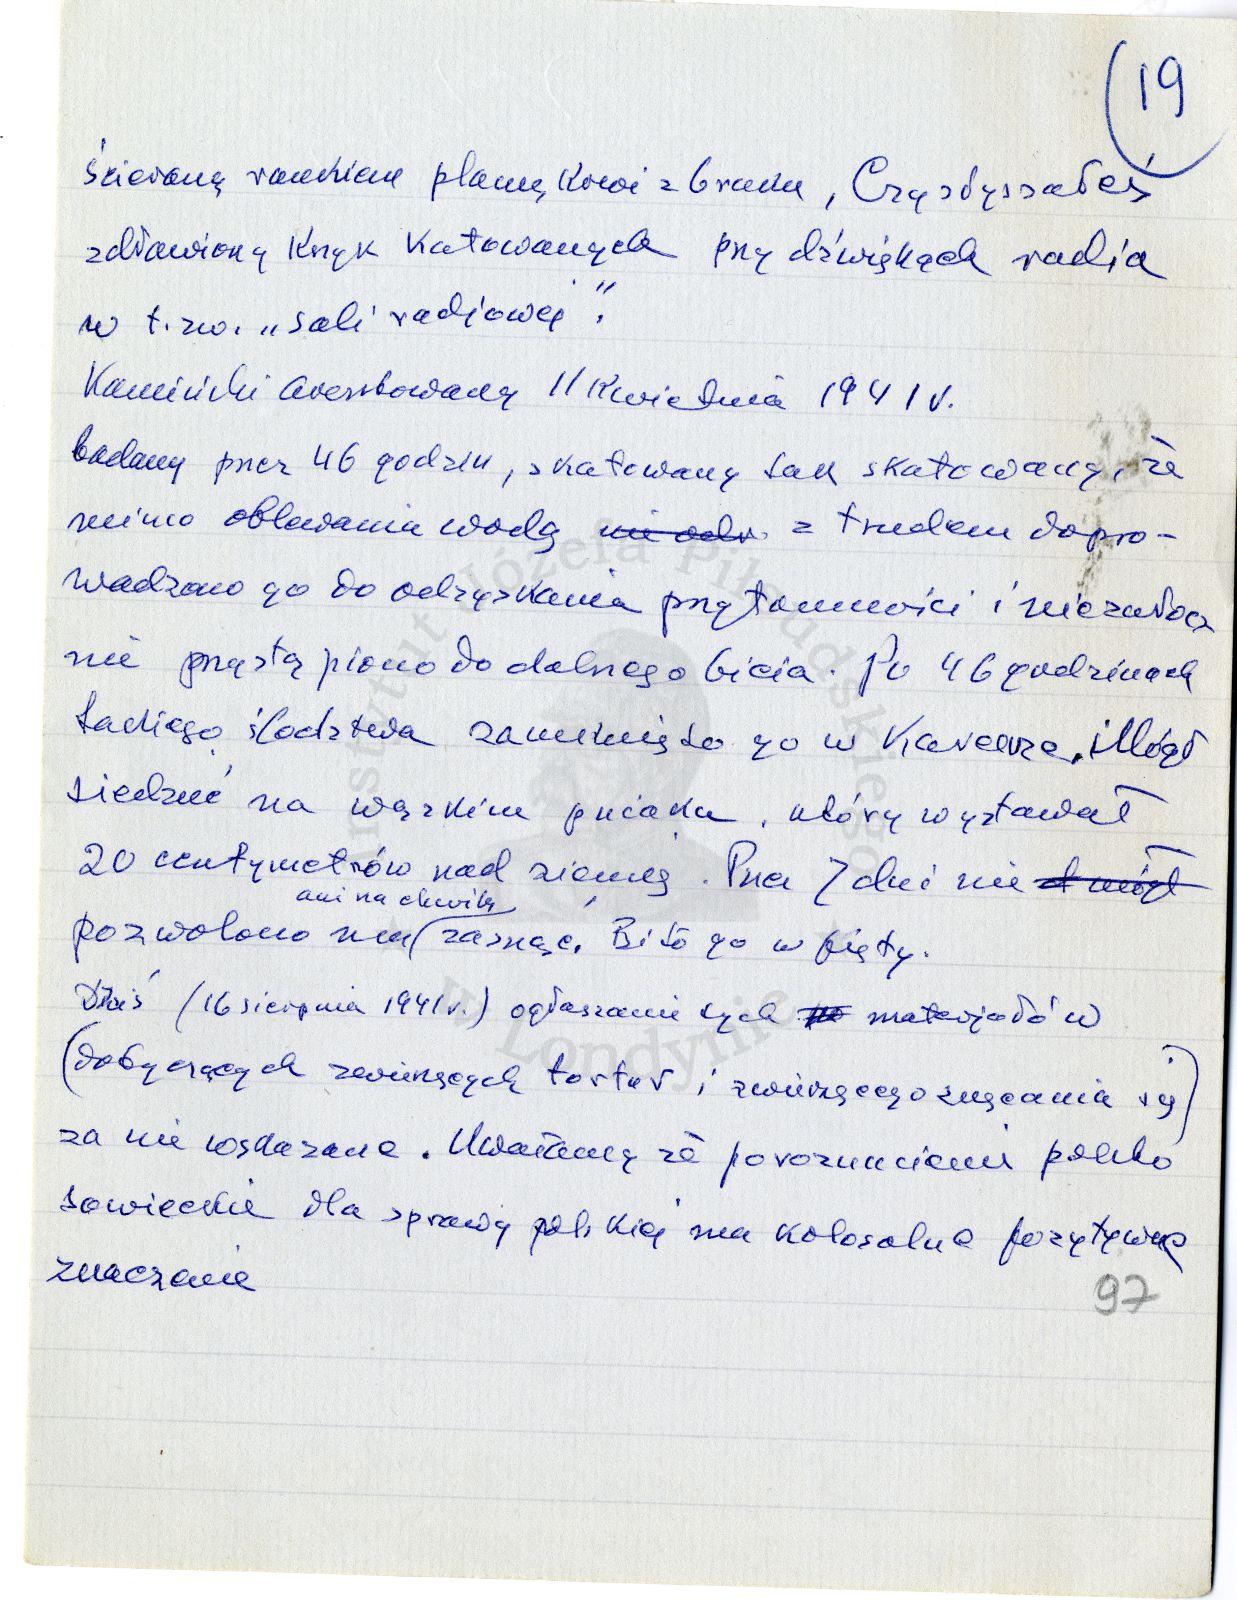 19
ścieraną rankiem plamę krwi z bruku, Czy słyszałeś
zdławiony krzyk katowanych przy dźwiękach radia
w t.zw. „sali radjowej".
Kamiński aresztowany 11 kwietnia 1941 r.
badany przez 46 godzin, skatowany tak skatowany, że
mimo oblewania wodą z trudem dopro-
wadzono go do odzyskania przytomności i niezwłocz
nie przystąpiono do dalszego bicia. Po 46 godzinach
takiego śledztwa zamknięto go w karcerze, i Mógł
siedzieć na wązkim pniaku, który wystawał
20 centymetrów nad ziemią. Przez 7 dni nie
ani na chwilę
pozwolono mu zasnąć. Bito go w pięty.
Dziś (16 sierpnia 1941 r.) ogłaszanie tych materjałów
(dotyczących zwierzęcych tortur i zwierzęcego znęcania się)
za nie wskazane. Uważamy że porozumienie polsko
sowieckie dla sprawy polskiej ma kolosalne pozytywne
znaczenie
97
Instytut Józefa Piłsudskiego
w Londynie